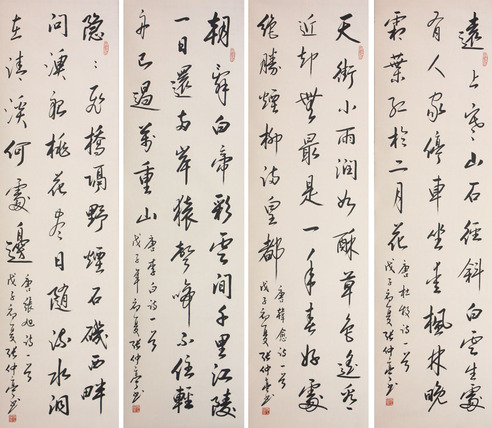 遠上寒山石徑斜白雲生處
有人家停車坐愛楓林晚
霜葉紅於二月花
唐杜牧詩一首
戊子初夏張仲亭書
天街小雨润如酥草色遙看
近却無最是一年春好處
绝勝煙柳满皇都
唐韓愈诗一首
戊子初夏張仲亭書
朝辞白帝彩雲間千里江陵
一日還两岸猿聲啼不住輕
舟已過萬重山
唐李白诗一首
戊子年初夏張仲亭書
隐〻飛橋隔野煙石磯西畔
問漁船桃花尽日随流水洞
在清溪何處邊
唐張旭诗一首
戊子初夏張仲亭書